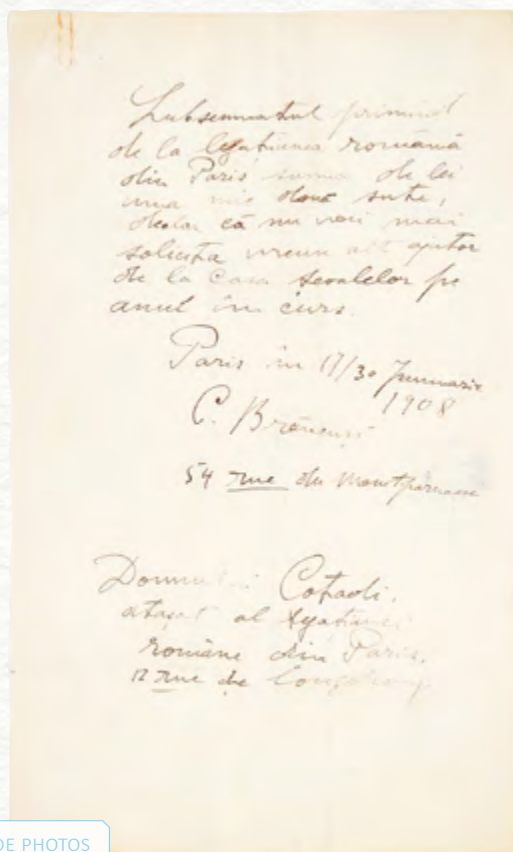 Subsemnatul primind
de la legatiunea română
din Paris suma de lei
una mie două sute,
declar că nu voi mai
solicita vreun alt ajutor
de la Casa Scoalelor pe
anul în curs.
Paris în 17/30 Januarie
1908
C. Brâncuși
54 rue du Montparnasse
Domnului
atașat al legatiunei
române din Paris.
12 rue de
DE PHOTOS